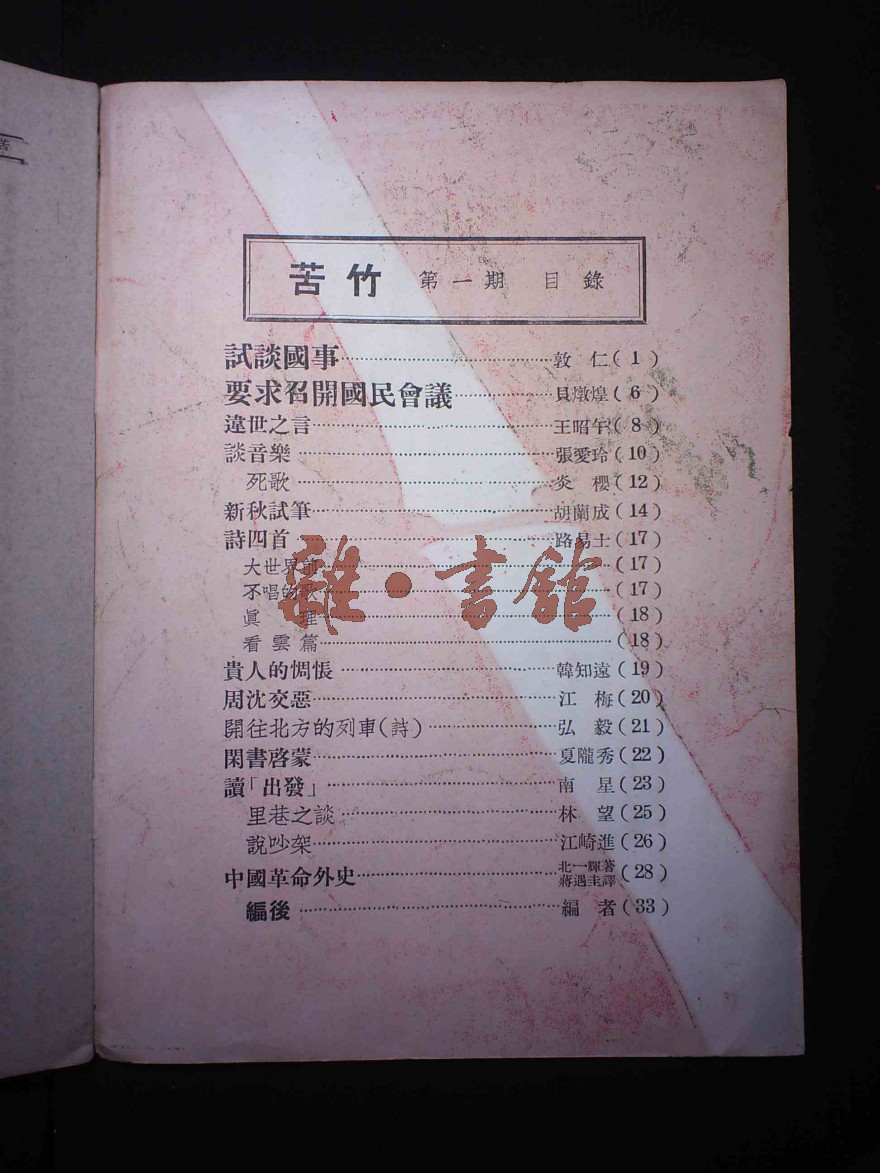 苦
苦竹 第一期 目錄
試談國事……敦 仁(1)
要求召開國民會議……貝燉煌(6)
違世之言……王昭午(8)
談音樂……張愛玲(10)
死歌……炎 櫻(12)
新秋試筆……胡蘭成(14)
詩四首……路易士(17)
大世界前……(17)
不唱的歌……(17)
眞 理……(18)
看雲篇……(18)
貴人的惆悵……韓知遠(19)
周沈交惡……江 梅(20)
開往北方的列車(詩)……弘 毅(21)
閑書啓蒙……夏隴秀(22)
讀「出發」……南 星(23)
里巷之談……林 望(25)
說吵架……江崎進(26)
中國革命外史……北一輝著 蔣遇圭譯(28)
編後……編 者(33)
雜·書館